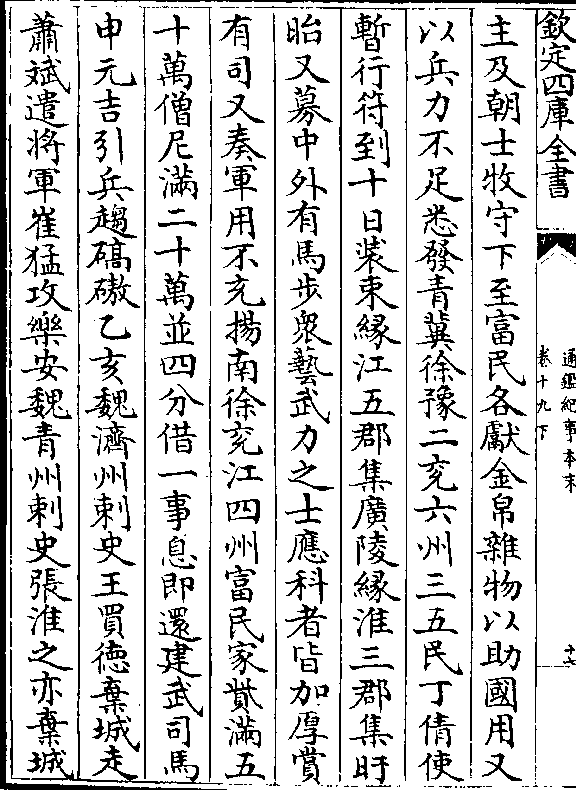 欽定四庫全書
通鑑紀事本末
卷十九下
十七
主及朝士牧守下至富民各獻金帛雜物以助國用又
以兵力不足悉發青冀徐豫二兖六州三五民丁倩使
暫行符到十日装束縁江五郡集廣陵縁淮三郡集盱
眙又募中外有馬步衆藝武力之士應科者皆加厚賞
有司又奏軍用不充揚南徐兖江四州富民家貲滿五
十萬僧尼滿二十萬並四分借一事息即還建武司馬
申元吉引兵趨碻磝乙亥魏濟州刺史王買徳棄城走
蕭斌遣將軍崔猛攻樂安魏青州刺史張淮之亦棄城